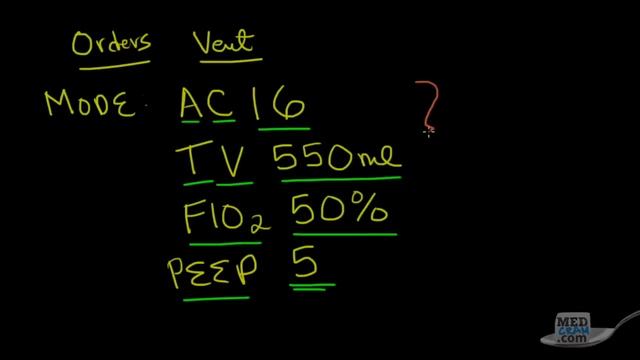 Orders Vent
MODE: AC 16
TV 550ml
FIO2 50%
PEEP 5
?
MED
CRAM
.com